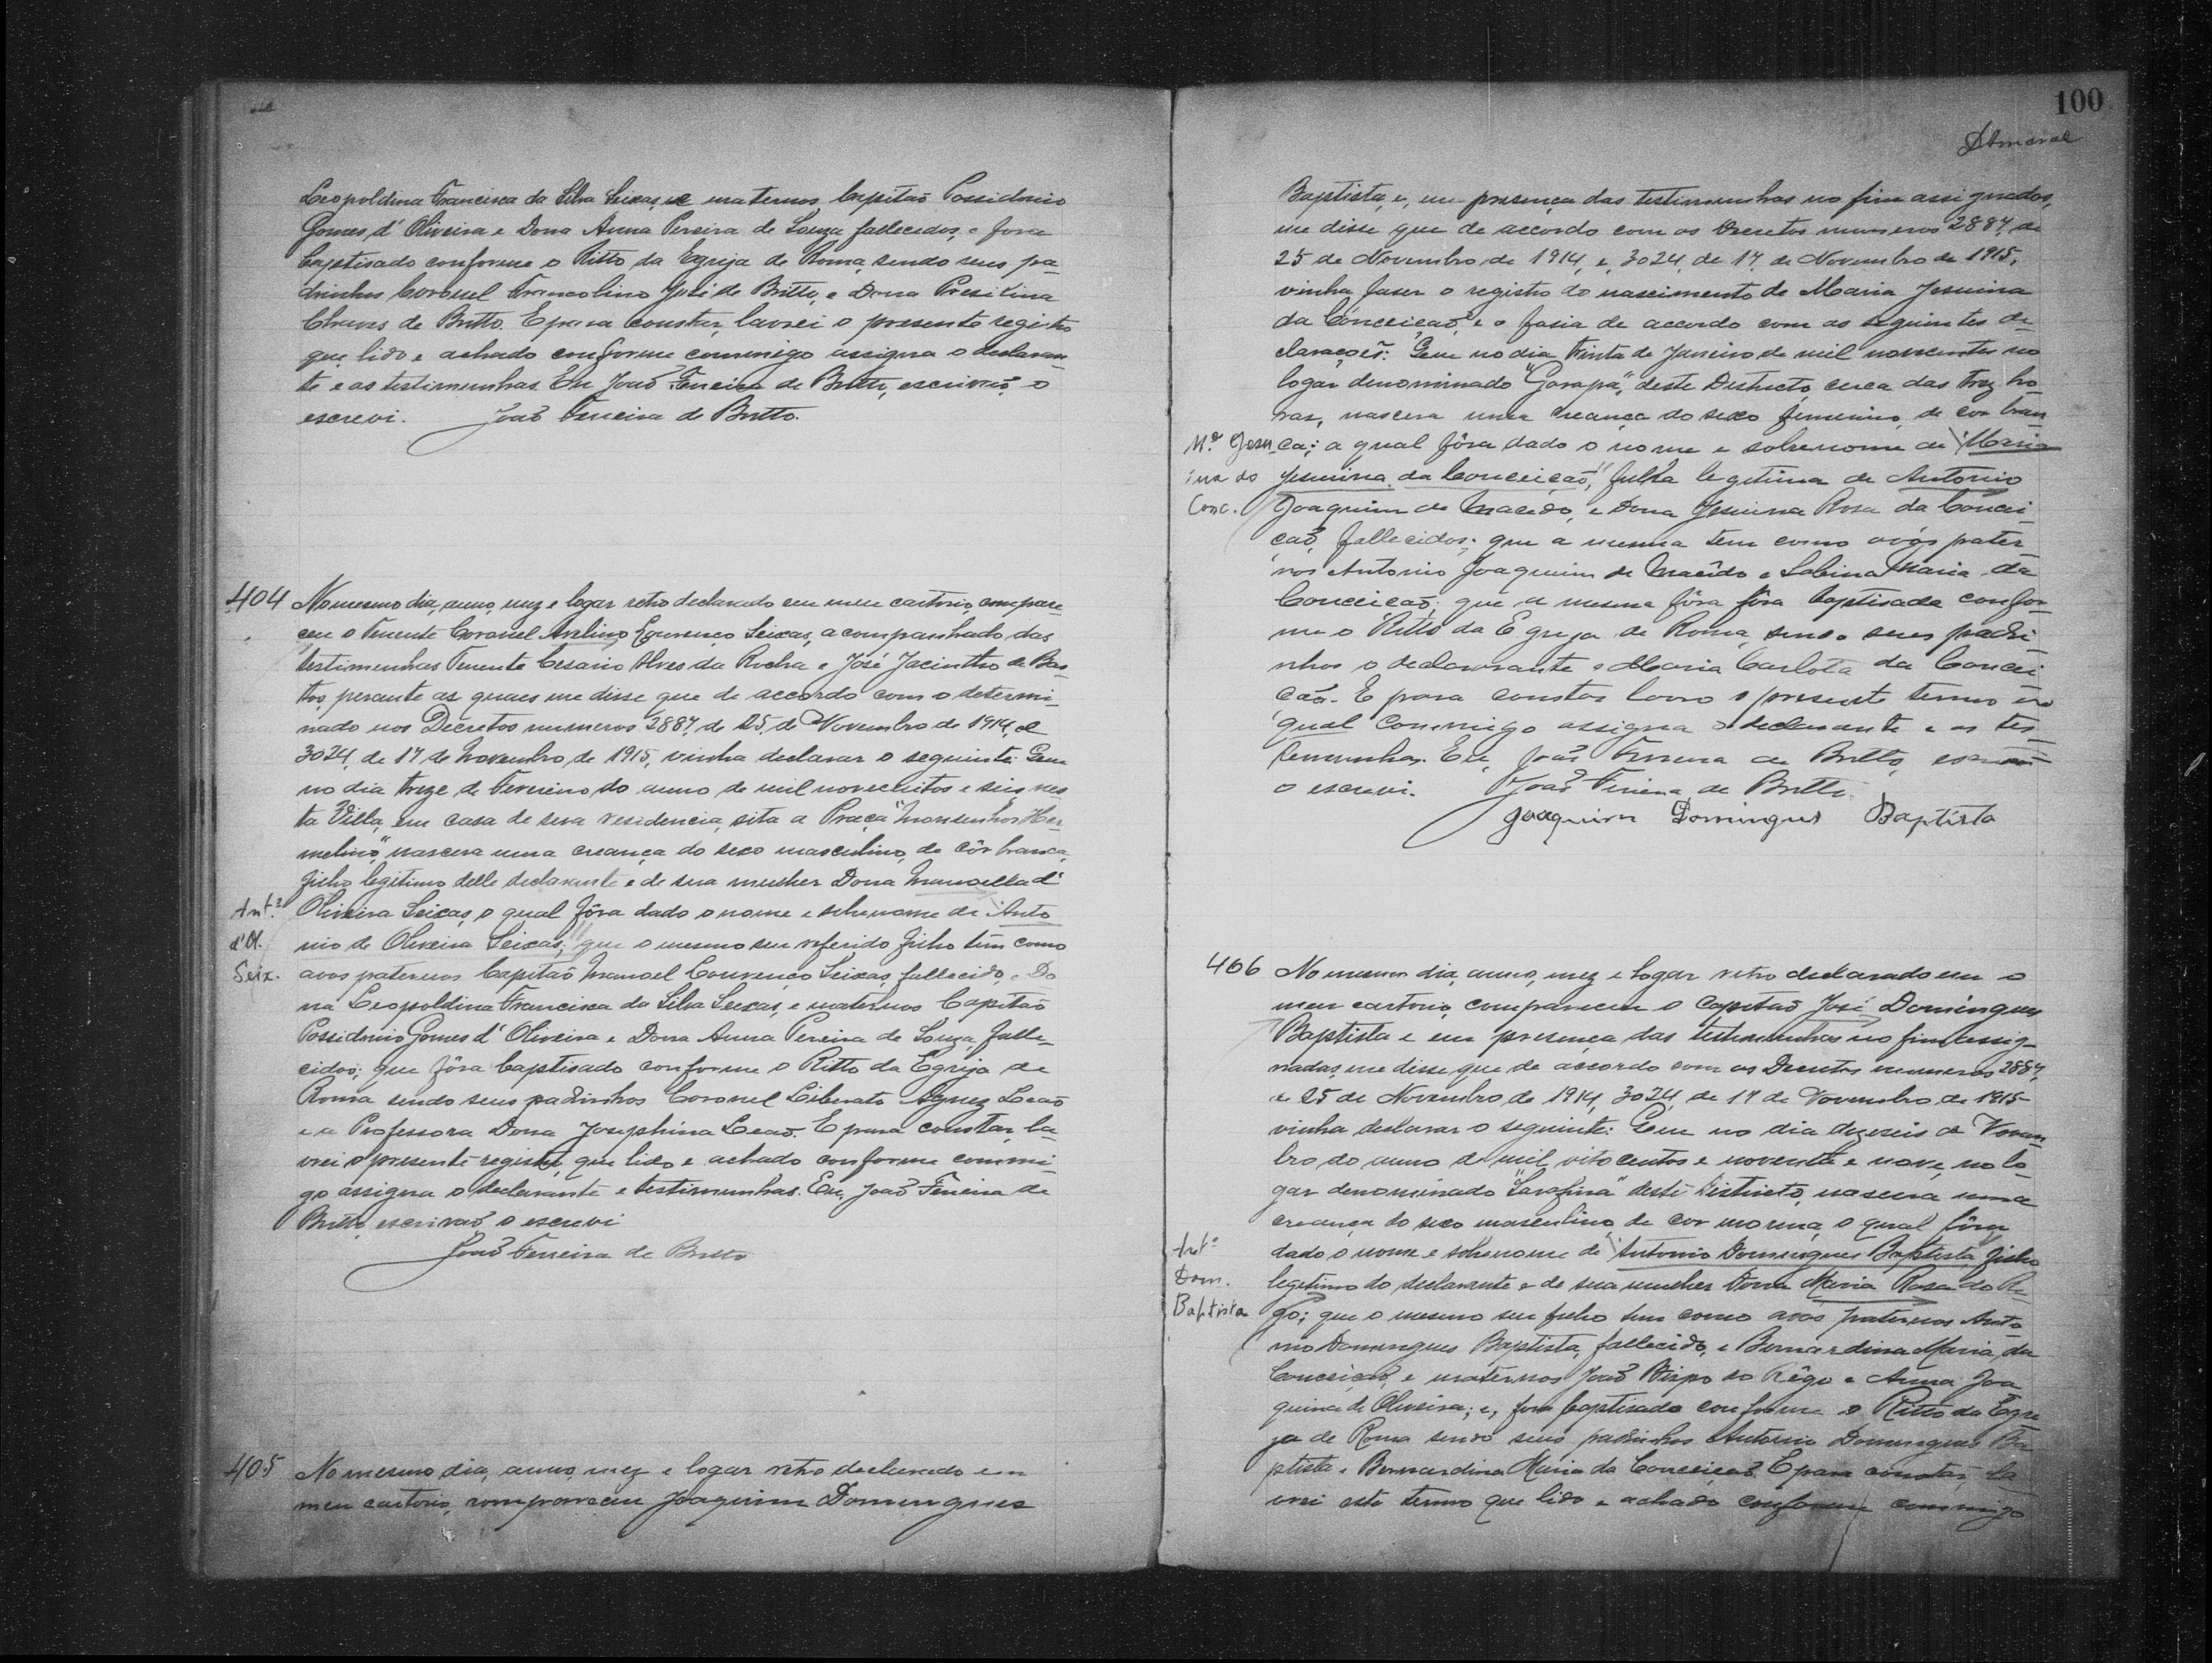 Leopoldina Francisca da Silva Seixas, e maternos Capitaõ Possidonio
Gomes d'Oliveira e Dona Anna Pereira de Souza fallecidos, e fora
baptisado conforme o Ritto da Egreja de Roma, sendo seus pa-
drinhos Coronel Francolino José de Britto, e Dona Presilina
Chaves de Britto. E para constar, lavrei o presente registro
que lido e achado conforme commigo assigna o declaran-
te e as testimunhas. Eu João Ferreira de Britto, escrivaõ, o
escrevi. João Ferreira de Britto.
404 No mesmo dia, anno, mez e logar retro declarado em meu cartorio, compare-
ceu o Tenente Coronel Avelino Lourenço Seixas, acompanhado das
testimunhas Tenente Cesario Alves da Rocha e José Jacintho de Bas-
tos, perante as quaes me disse que de accordo com o determi-
nado nos Decretos numeros 2887, de 25, de Novembro de 1914, e
3024, de 17 de Novembro de 1915, vinha declarar o seguinte: Que
no dia treze de Fevereiro do anno de mil novecentos e seis nes-
ta Villa, em casa de sua residencia, sita a Praça "Monsenhor Her-
melino", nascera uma creança do sexo masculino, de côr branca,
filho legitimo delle declarante e de sua mulher Dona Manoella d'
Ant.º Oliveira Seixas, o qual fôra dado o nome e sobrenome de "Anto-
d'Ol. nio de Oliveira Seixas"; que o mesmo seu referido filho tem como
Seix. avos paternos Capitaõ Manoel Lourenço Seixas, fallecido, e Do-
na Leopoldina Francisca da Silva Seixas, e maternos Capitaõ
Possidonio Gomes d'Oliveira e Dona Anna Pereira de Souza, falle-
cidos; que fôra baptisado conforme o Ritto da Egreja de
Roma sendo seus padrinhos Coronel Liberato Leaõ
e a Professora Dona Josephina Leaõ. E para constar, la-
vrei o presente registro, que lido e achado conforme commi-
go assigna o declarante e testimunhas. Eu, João Ferreira de
Britto, escrivaõ, o escrevi
João Ferreira de Britto
405 No mesmo dia, anno, mez e logar retro declarado em
meu cartorio, compareceu Joaquim Domingues
100
Baptista, e, em presença das testimunhas no fim assignados,
me disse que de accordo com os Decretos numeros 2887, de
25 de Novembro de 1914, e, 3024, de 17, de Novembro de 1915,
vinha faser o registro do nascimento de Maria Jesuina
da Conceiçaõ, e o fasia de accordo com as seguintes de-
claraçoẽs: Que no dia trinta de Janeiro de mil novecentos no
logar denominado "Garapa", deste Districto, cerca das trez ho-
ras, nascera uma creança do sexo femenino, de cor bran-
M.ª Jesu- ca; a qual fôra dado o nome e sobrenome de "Maria
ina da Jesuina da Conceiçaõ", filha legitima de Antonio
Conc. Joaquim de Macedo, e Dona Jesuina Rosa da Concei-
çaõ, fallecidos; que a mesma tem como avós pater-
nos Antonio Joaquim de Macêdo e Sabina Maria da
Conceiçaõ; que a mesma fôra fôra baptisada confor-
me o Ritto da Egreja de Roma, sendo seus padri-
nhos o declarante e Maria Carlota da Concei-
çaõ. E para constar lavro o presente termo no
qual commigo assigna o declarante e as tes-
temunhas. Eu, João Ferreira de Britto, escrivaõ
o escrevi. João Ferreira de Britto.
Joaquim Domingues Baptista
406 No mesmo dia, anno, mez e logar retro declarado em o
meu cartorio, compareceu o Capitaõ José Domingues
Baptista e em presença das testimunhas no fim assig-
nadas, me disse que de accordo com os Decretos numeros 2887,
e 25 de Novembro de 1914, 3024, de 17 de Novembro de 1915
vinha declarar o seguinte: Que no dia dezeseis de Novem-
bro do anno de mil oito centos e noventa e nove, no lo-
gar denominado deste Districto, nascera uma
creança do sexo masculino, de cor morena, o qual fôra
Ant.º dado o nome e sobrenome de "Antonio Domingues Baptista, filho
Dom. legitimo do declarante e de sua mulher Dona Maria Rosa do Re-
Baptista go; que o mesmo seu filho tem como avos paternos Anto-
nio Domingues Baptista, fallecido, e Bernardina Maria da
Conceiçaõ, e maternos João Bispo do Rêgo e Anna Joa-
quina de Oliveira; e, fora baptisado conforme o Ritto da Egre-
ja de Roma sendo seus padrinhos Antonio Domingues Ba-
ptista e Bernardina Maria da Conceiçaõ. E para constar, la-
vrei este termo que lido e achado conforme commigo